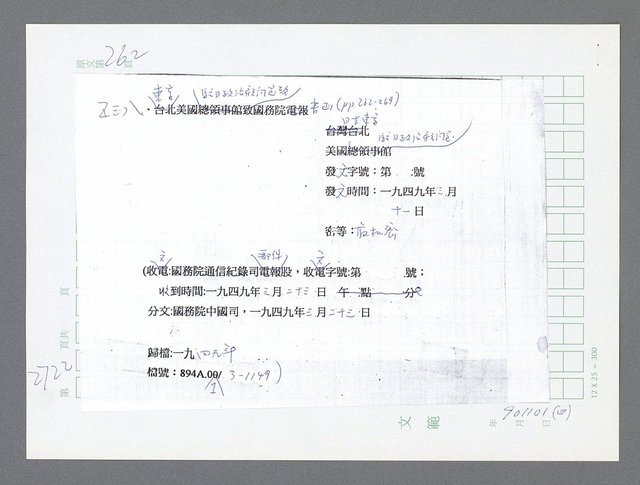 原文第262頁
東京
台北美國總領事館致國務院電報 (pp 262-269)
日本東京
台灣台北
美國總領事館
發文字號：第 號
發文時間：一九四九年三月
十一日
密等：
文 郵件 文
(收電:國務院通信紀錄司電報股，收電字號:第 號；
收到時間:一九四九年三月二十三日 午 點 分
分文:國務院中國司，一九四九年三月二十三日
歸檔:一九四九年
檔號：894A.00/ 3-1149)
頁
頁共
2722
第
12 X 25 = 300
文範
901101
年 月 日